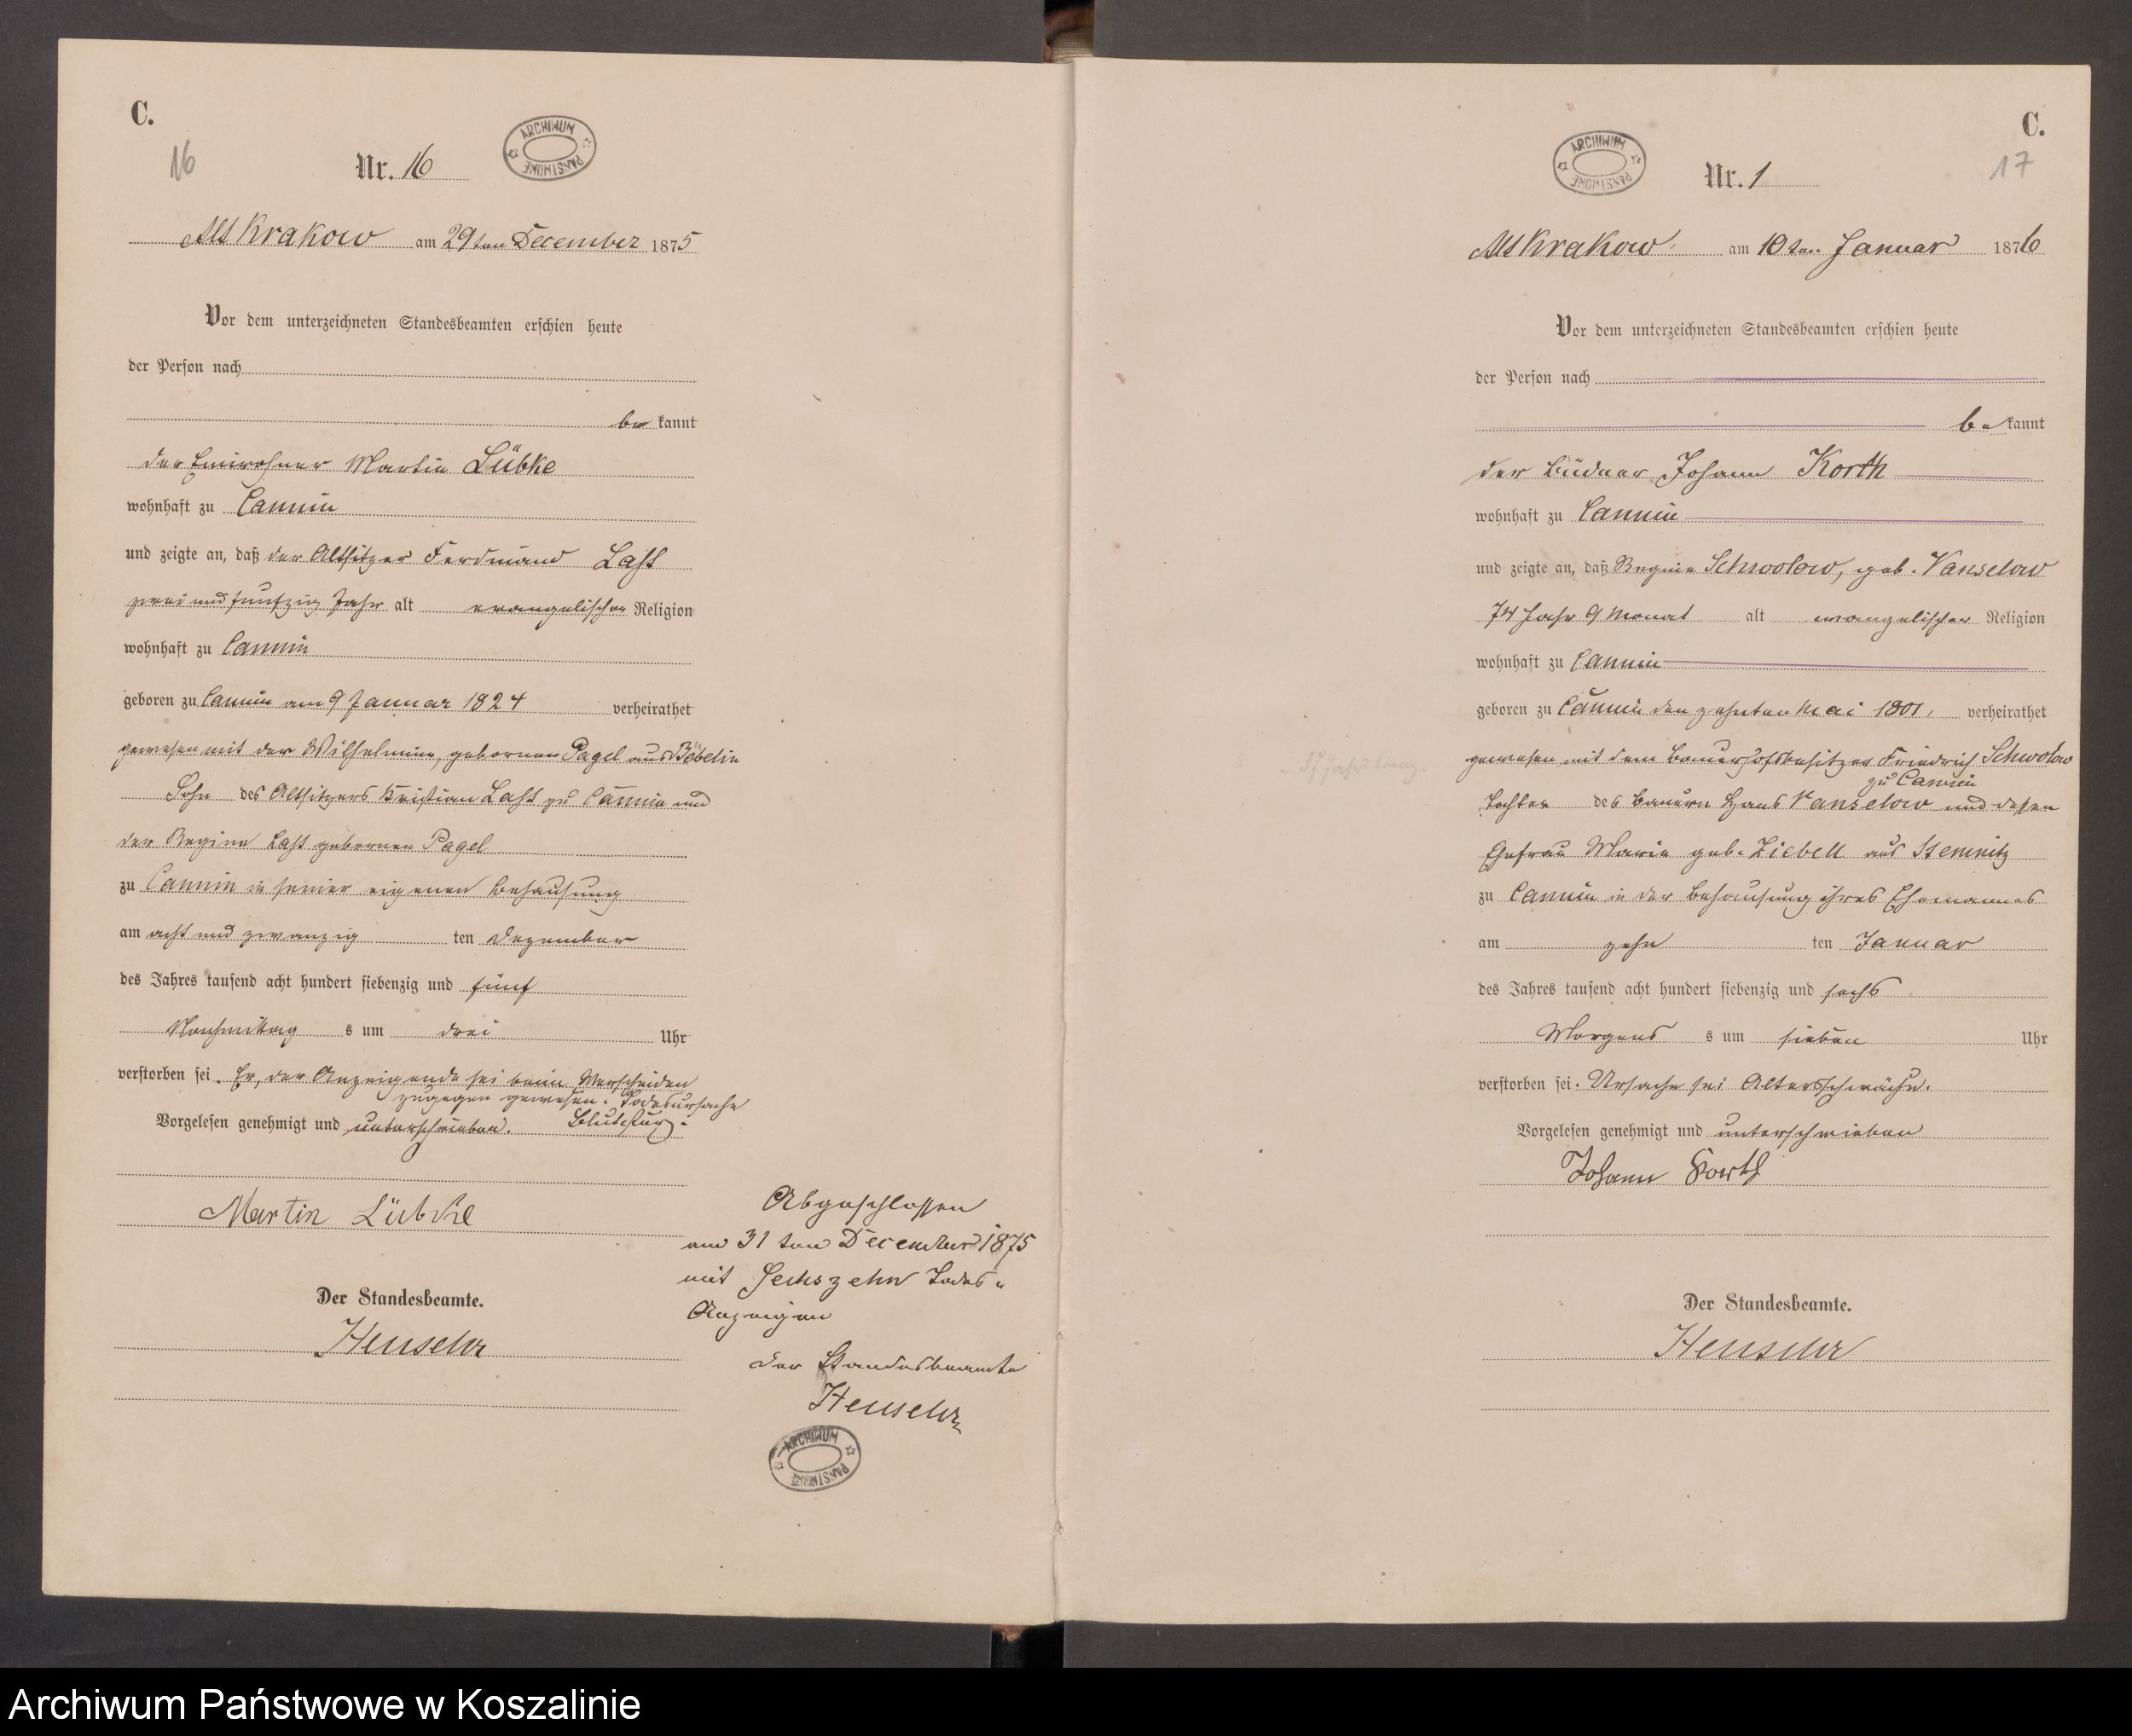 C.
16
Nr. 16
ARCHIWUM PAŃSTWOWE
Alt Krakow am 29ten December 1875
Vor dem unterzeichneten Standesbeamten erschien heute
der Person nach
be kannt
der Einwohner Martin Lübke
wohnhaft zu Cannin
und zeigte an, daß der Altsitzer Ferdinand Last
zwei und fünfzig Jahr alt evangelischer Religion
wohnhaft zu Cannin
geboren zu Cannin am 9 Januar 1824 verheirathet
gewesen mit der Wilhelmine, gebornen Pagel aus Böbelin
Sohn des Altsitzers Kristian Last zu Cannin und
der Regine Last gebornen Pagel
zu Cannin in seiner eigenen Behausung
am acht und zwanzig ten Dezember
des Jahres tausend acht hundert siebenzig und fünf
Nachmittag s um drei Uhr
verstorben sei. Er, der Anzeigende sei beim Verscheiden
zugegen gewesen. Todesursache
Vorgelesen genehmigt und unterschrieben. Blutsturz.
Martin Lübke
Der Standesbeamte.
Abgeschlossen
am 31 ten December 1875
mit Sechszehn Todes-
Anzeigen
der Standesbeamte
ARCHIWUM PAŃSTWOWE
C.
17
Nr. 1
ARCHIWUM PAŃSTWOWE
Alt Krakow am 10 ten Januar 1876
Vor dem unterzeichneten Standesbeamten erschien heute
der Person nach
be kannt
der Büdner Johann Korth
wohnhaft zu Cannin
und zeigte an, daß Regine Schwolow, geb. Vanselow
74 Jahr 9 Monat alt evangelischer Religion
wohnhaft zu Cannin
geboren zu Cannin den zehnten Mai 1801, verheirathet
gewesen mit dem Bauerhofsbesitzer Friedrich Schwolow
zu Cannin
Tochter des Bauern Hans Vanselow und dessen
Ehefrau Marie geb. Ziebell aus Stemnitz
zu Cannin in der Behausung ihres Ehemannes
am zehn ten Januar
des Jahres tausend acht hundert siebenzig und sechs
Morgens s um sieben Uhr
verstorben sei. Ursache sei Altersschwäche.
Vorgelesen genehmigt und unterschrieben
Johann Korth
Der Standesbeamte.
Archiwum Państwowe w Koszalinie